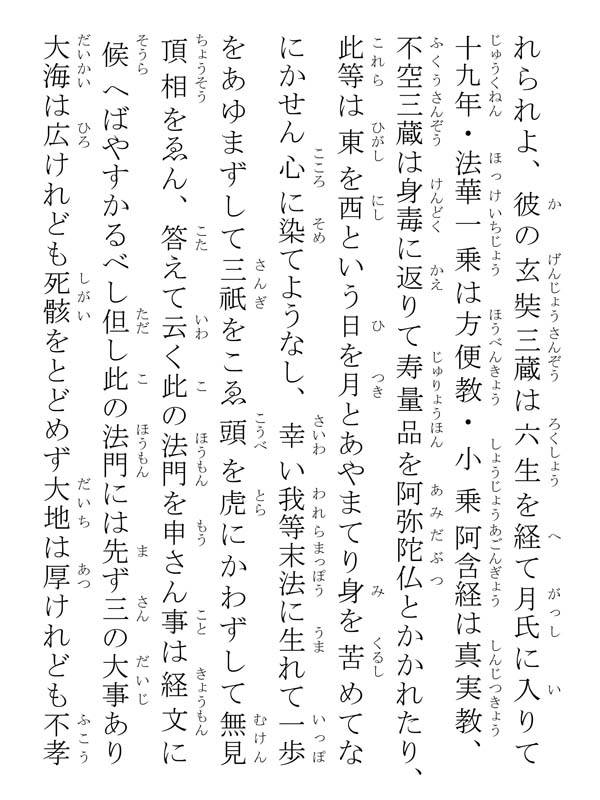 れられよ、彼の玄奘三蔵は六生を経て月氏に入りて
十九年・法華一乗は方便教・小乗阿含経は真実教、
不空三蔵は身毒に返りて寿量品を阿弥陀仏とかかれたり、
此等は東を西という日を月とあやまてり身を苦めてな
にかせん心に染てようなし、幸い我等末法に生れて一歩
をあゆまずして三祇をこゑ頭を虎にかわずして無見
頂相をゑん、答えて云く此の法門を申さん事は経文に
候へばやすかるべし但し此の法門には先ず三の大事あり
大海は広けれども死骸をとどめず大地は厚けれども不孝